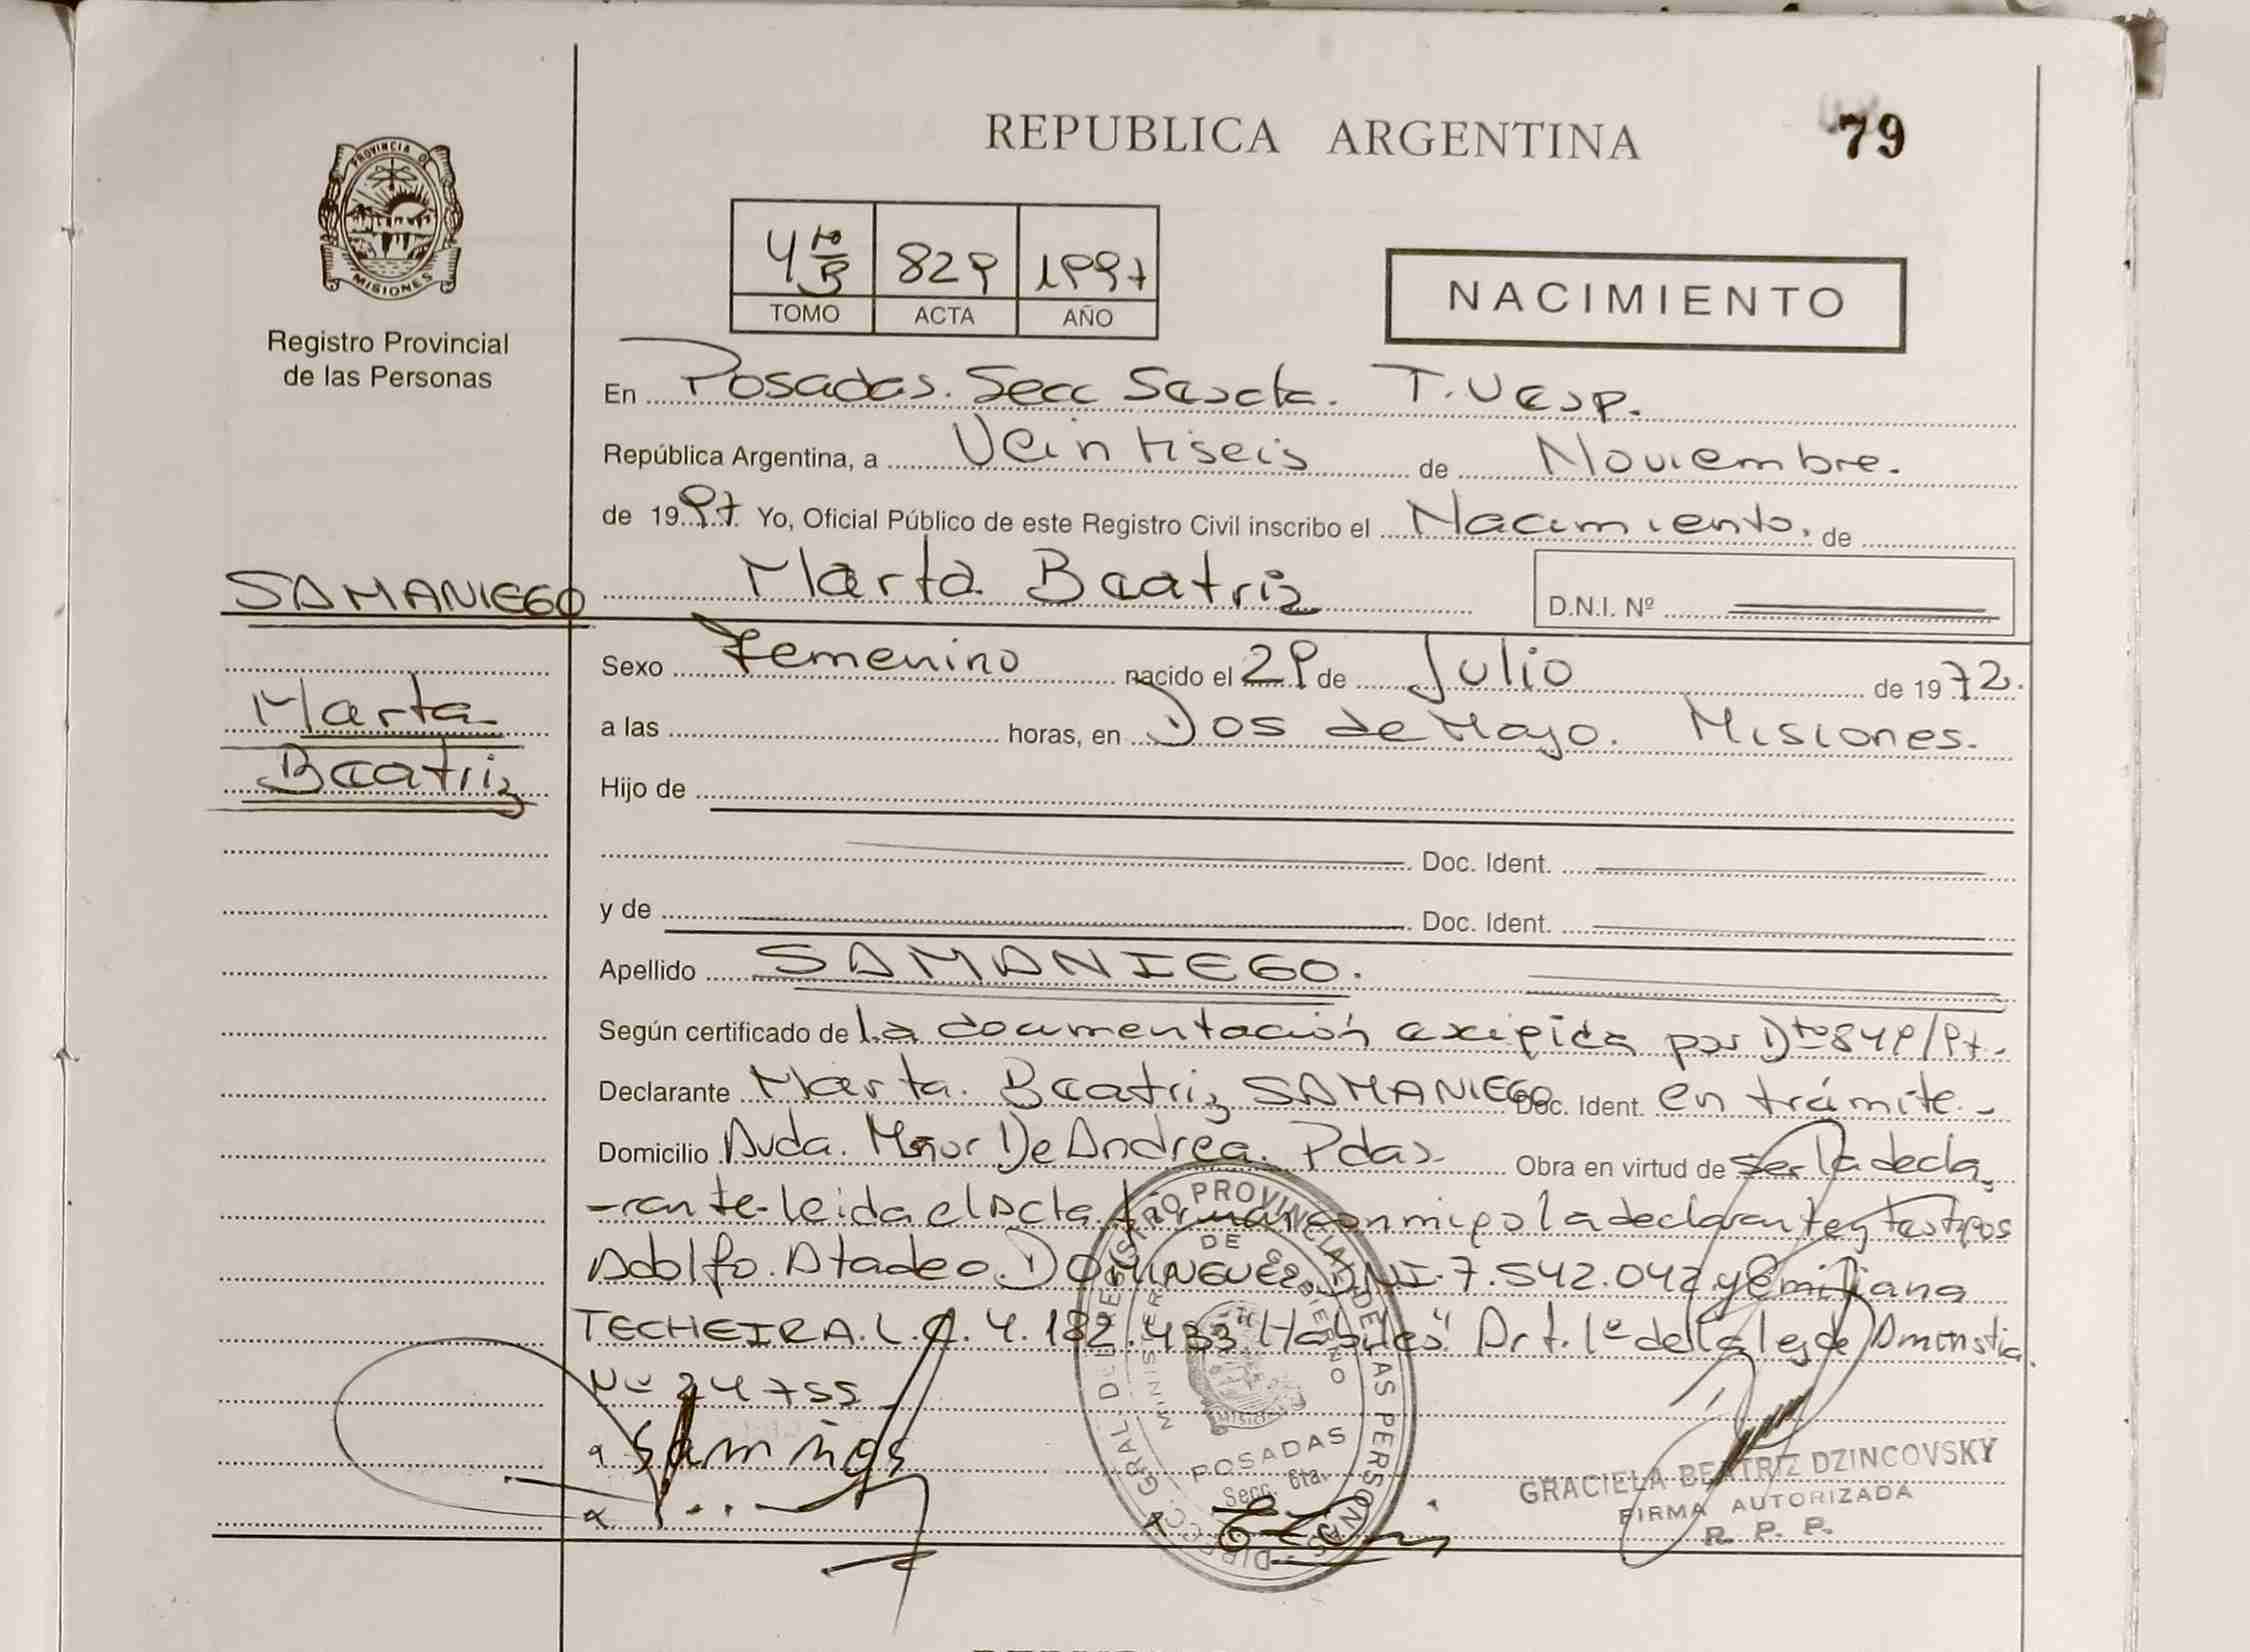 REPUBLICA ARGENTINA
79
PROVINCIA DE
MISIONES
Registro Provincial
de las Personas
4to B 829 1997
TOMO ACTA AÑO
NACIMIENTO
En Posadas. Secc Sexta. T. Vesp.
República Argentina, a Veintiseis de Noviembre.
de 1997 Yo, Oficial Público de este Registro Civil inscribo el Nacimiento. de
SAMANIEGO
Marta Beatriz
D.N.I. Nº
Sexo Femenino nacido el 29 de Julio de 1972.
Marta
a las horas, en Dos de Mayo. Misiones.
Beatriz
Hijo de
Doc. Ident.
y de Doc. Ident.
Apellido SAMANIEGO.
Según certificado de la documentación exigida por Dto 849/97.
Declarante Marta Beatriz SAMANIEGO Doc. Ident. en trámite.-
Domicilio Avda. Mñor De Andrea. Pdas. Obra en virtud de ser la decla
-rante-leida el Acta firman conmigo la declarante y testigos
Adolfo. Atadeo. DOMINGUEZ DNI. 7.542.042 y Emiliana
TECHEIRA. L.C. 4.132.433 "Habiles". Art. 1º de la ley de Aminstia.
Nº 24755
DIRECC. GRAL. DE REGISTRO PROVINCIAL DE LAS PERSONAS
MINISTERIO DE GOBIERNO
POSADAS
Secc. 6ta.
GRACIELA BEATRIZ DZINCOVSKY
FIRMA AUTORIZADA
R. P. P.